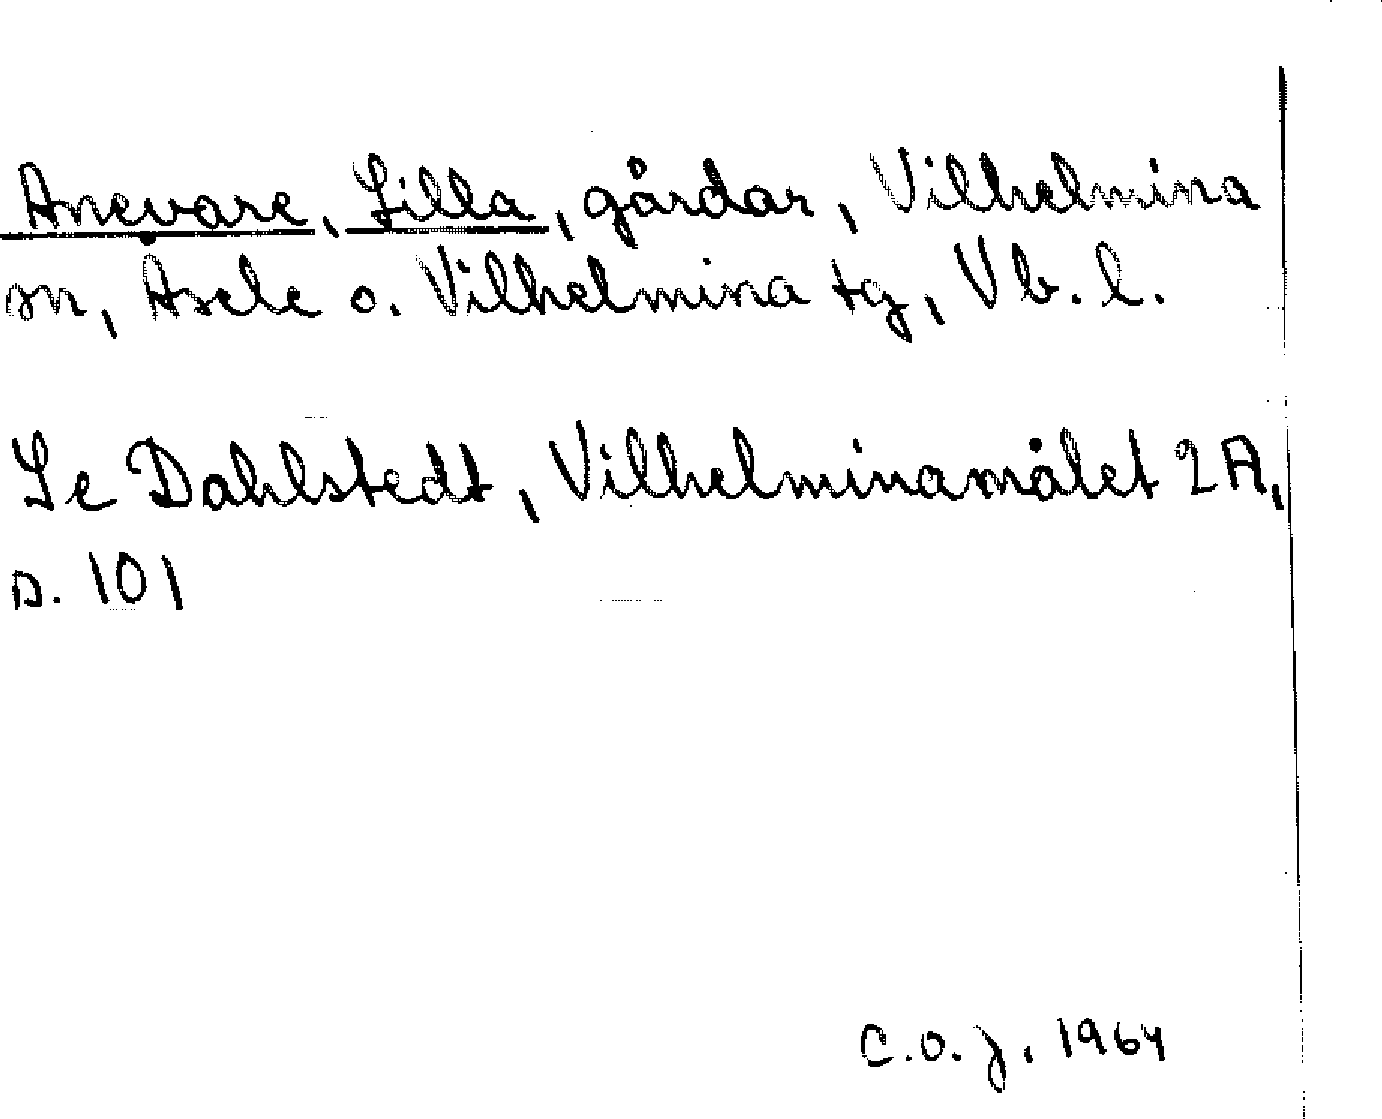 Anevare, Lilla, gårdar, Vilhelmina
sn, Åsele o. Vilhelmina tg, Vb. l.
Se Dahlstedt, Vilhelminamålet 2A,
s. 101
C.O.J. 1964